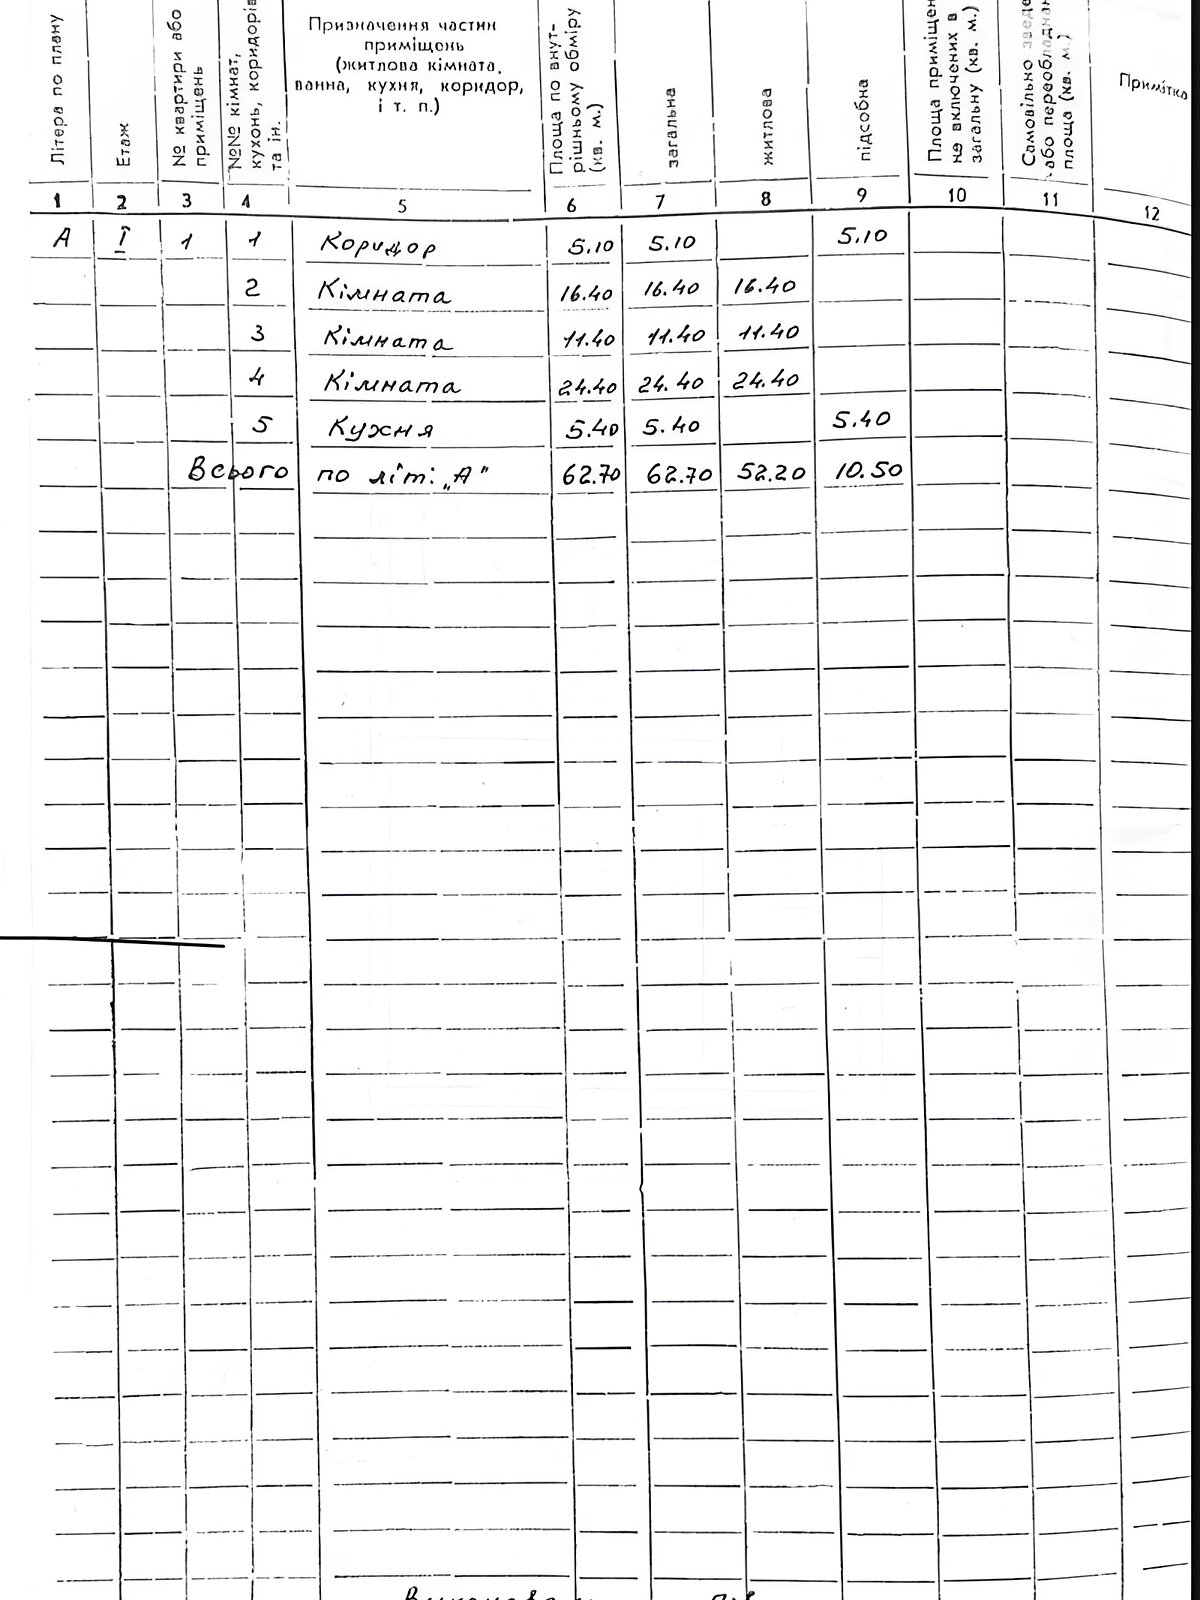 Літера по плану
Етаж
№ квартири або приміщень
№№ кімнат, кухонь, коридорів та ін.
Призначення частин
приміщень
(житлова кімната,
ванна, кухня, коридор,
і т. п.)
Площа по внут-
рішньому обміру
(кв. м.)
загальна
житлова
підсобна
Площа приміщен
не включених в
загальну (кв. м.)
Самовільно зведе
або переобладнан
площа (кв. м.)
Примітка
1 2 3 4 5 6 7 8 9 10 11 12
А І 1 1 Коридор 5.10 5.10 5.10
2 Кімната 16.40 16.40 16.40
3 Кімната 11.40 11.40 11.40
4 Кімната 24.40 24.40 24.40
5 Кухня 5.40 5.40 5.40
Всього по літ: „А" 62.70 62.70 52.20 10.50